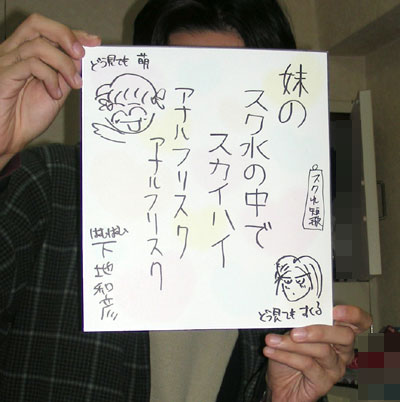 妹の
スク水の中で
スカイハイ
アナルフリスク
アナルフリスク
どう見ても 萌
どう見ても すぐる
下地和彦